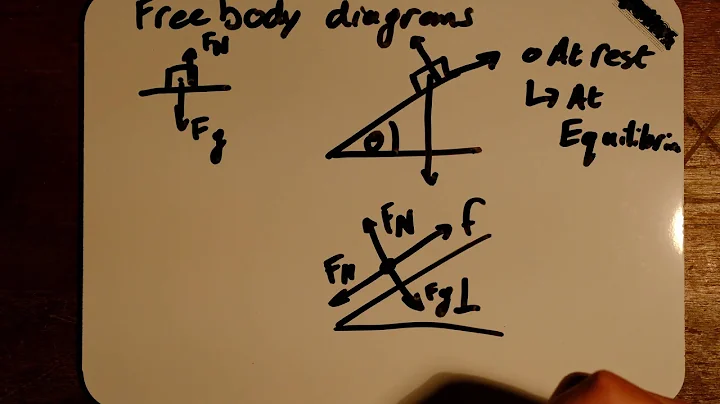 Free body diagrams
FN
Fg
θ
At rest
↳ At
Equilibriu
FN
f
FN
Fg⊥